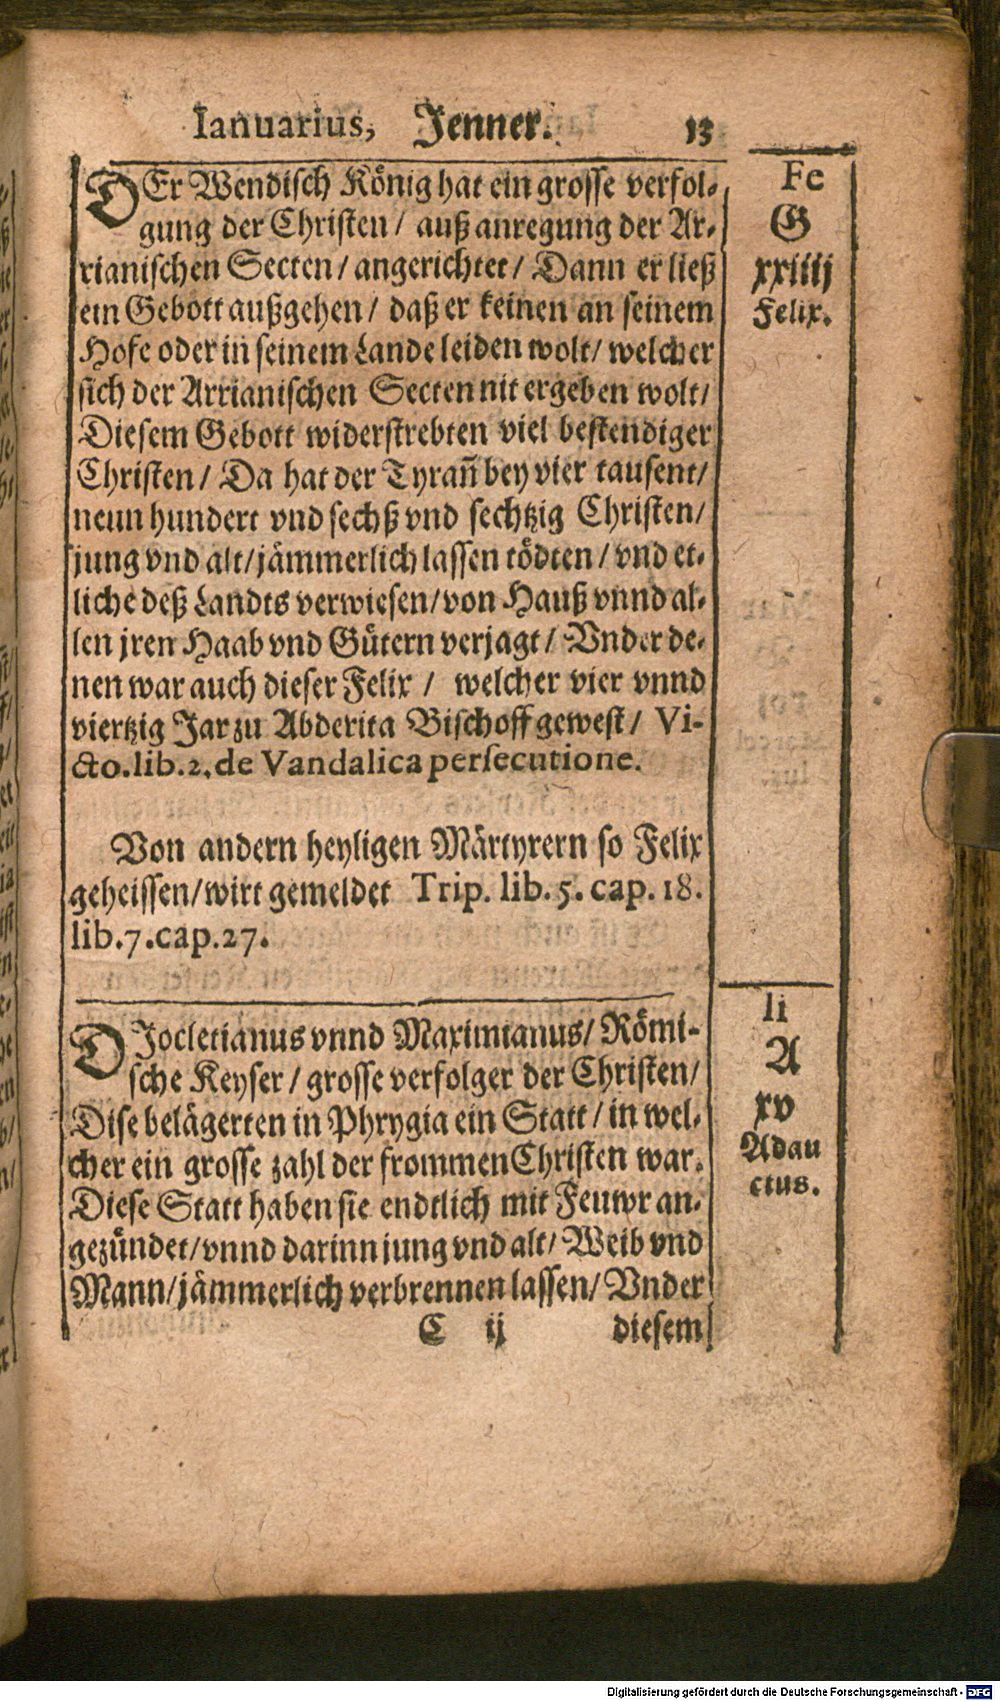 Ianuarius, Jenner. 13
DEr Wendisch König hat ein grosse verfol-
gung der Christen / auß anregung der Ar-
rianischen Secten / angerichtet / Dann er ließ
ein Gebott außgehen / daß er keinen an seinem
Hofe oder in seinem Lande leiden wolt / welcher
sich der Arrianischen Secten nit ergeben wolt /
Diesem Gebott widerstrebten viel bestendiger
Christen / Da hat der Tyrañ bey vier tausent /
neun hundert vnd sechß vnd sechtzig Christen /
jung vnd alt / jämmerlich lassen tödten / vnd et-
liche deß Landts verwiesen / von Hauß vnnd al-
len jren Haab vnd Gütern verjagt / Vnder de-
nen war auch dieser Felix / welcher vier vnnd
viertzig Jar zu Abderita Bischoff gewest / Vi-
cto. lib. 2. de Vandalica persecutione.
Von andern heyligen Märtyrern so Felix
geheissen / wirt gemeldet Trip. lib. 5. cap. 18.
lib. 7. cap. 27.
Fe
G
xxiiij
Felix.
DJocletianus vnnd Maximianus / Römi-
sche Keyser / grosse verfolger der Christen /
Dise belägerten in Phrygia ein Statt / in wel-
cher ein grosse zahl der frommen Christen war.
Diese Statt haben sie endtlich mit Feuwr an-
gezündet / vnnd darinn jung vnd alt / Weib vnd
Mann / jämmerlich verbrennen lassen / Vnder
C ij diesem
li
A
xv
Adau
ctus.
Digitalisierung gefördert durch die Deutsche Forschungsgemeinschaft - DFG